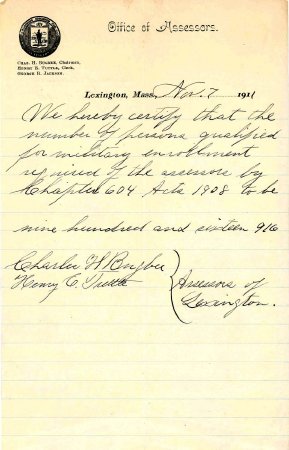 Office of Assessors.
George H. Jackson.
Lexington, Mass., Nov. 7 1911
We hereby certify that the
number of persons qualified
for military enrollment
required of the assessors by
Chapter 604 Acts 1908 to be
nine hundred and sixteen 916
Charles H
Henry E. Tuttle
Assessors of
Lexington.